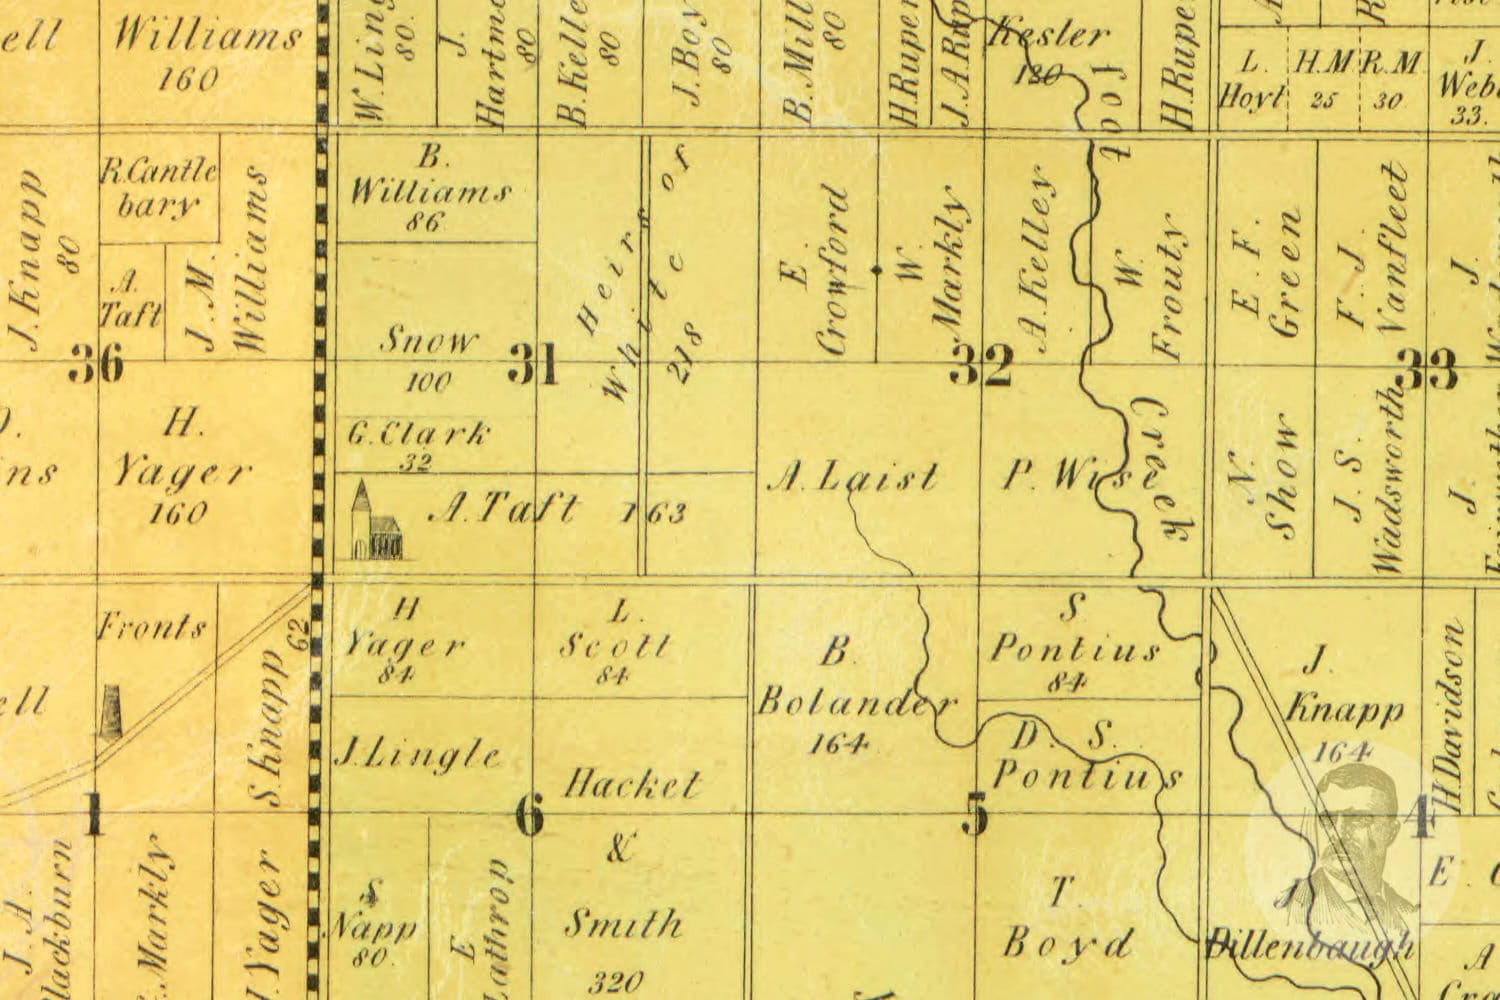 ell
Williams
160
80
J.
80
80
80
80
Kesler
120
L.
Hoyt
H.M
25
R.M
30
J.
33.
J.Knapp
80
R.Cantle
bary
A.
Taft
J.M.
Williams
36
B.
Williams
86
Snow
100
G.Clark
32
31
Heirs or
White or
218
A.Taft 163
E
Crowford
W.
Markly
A.Kelley
W.
Frouty
Foot
Creek
32
A.Laist
P. Wise
E. F.
Green
F. J.
Vanfleet
J.
33
N.
Show
J. S.
Wadsworth
J.
ns
H.
Yager
160
Fronts
ell
S.Knapp
62
H
Yager
84
L.
Scott
84
J.Lingle
Hacket
&
Smith
320
6
B.
Bolander
164
S
Pontius
84
D. S.
Pontius
5
J.
Knapp
164
H.Davidson
4
1
J. A.
Markly
Yager
S
Napp
80.
E
Lathrop
T.
Boyd
Dillenbaugh
E
A